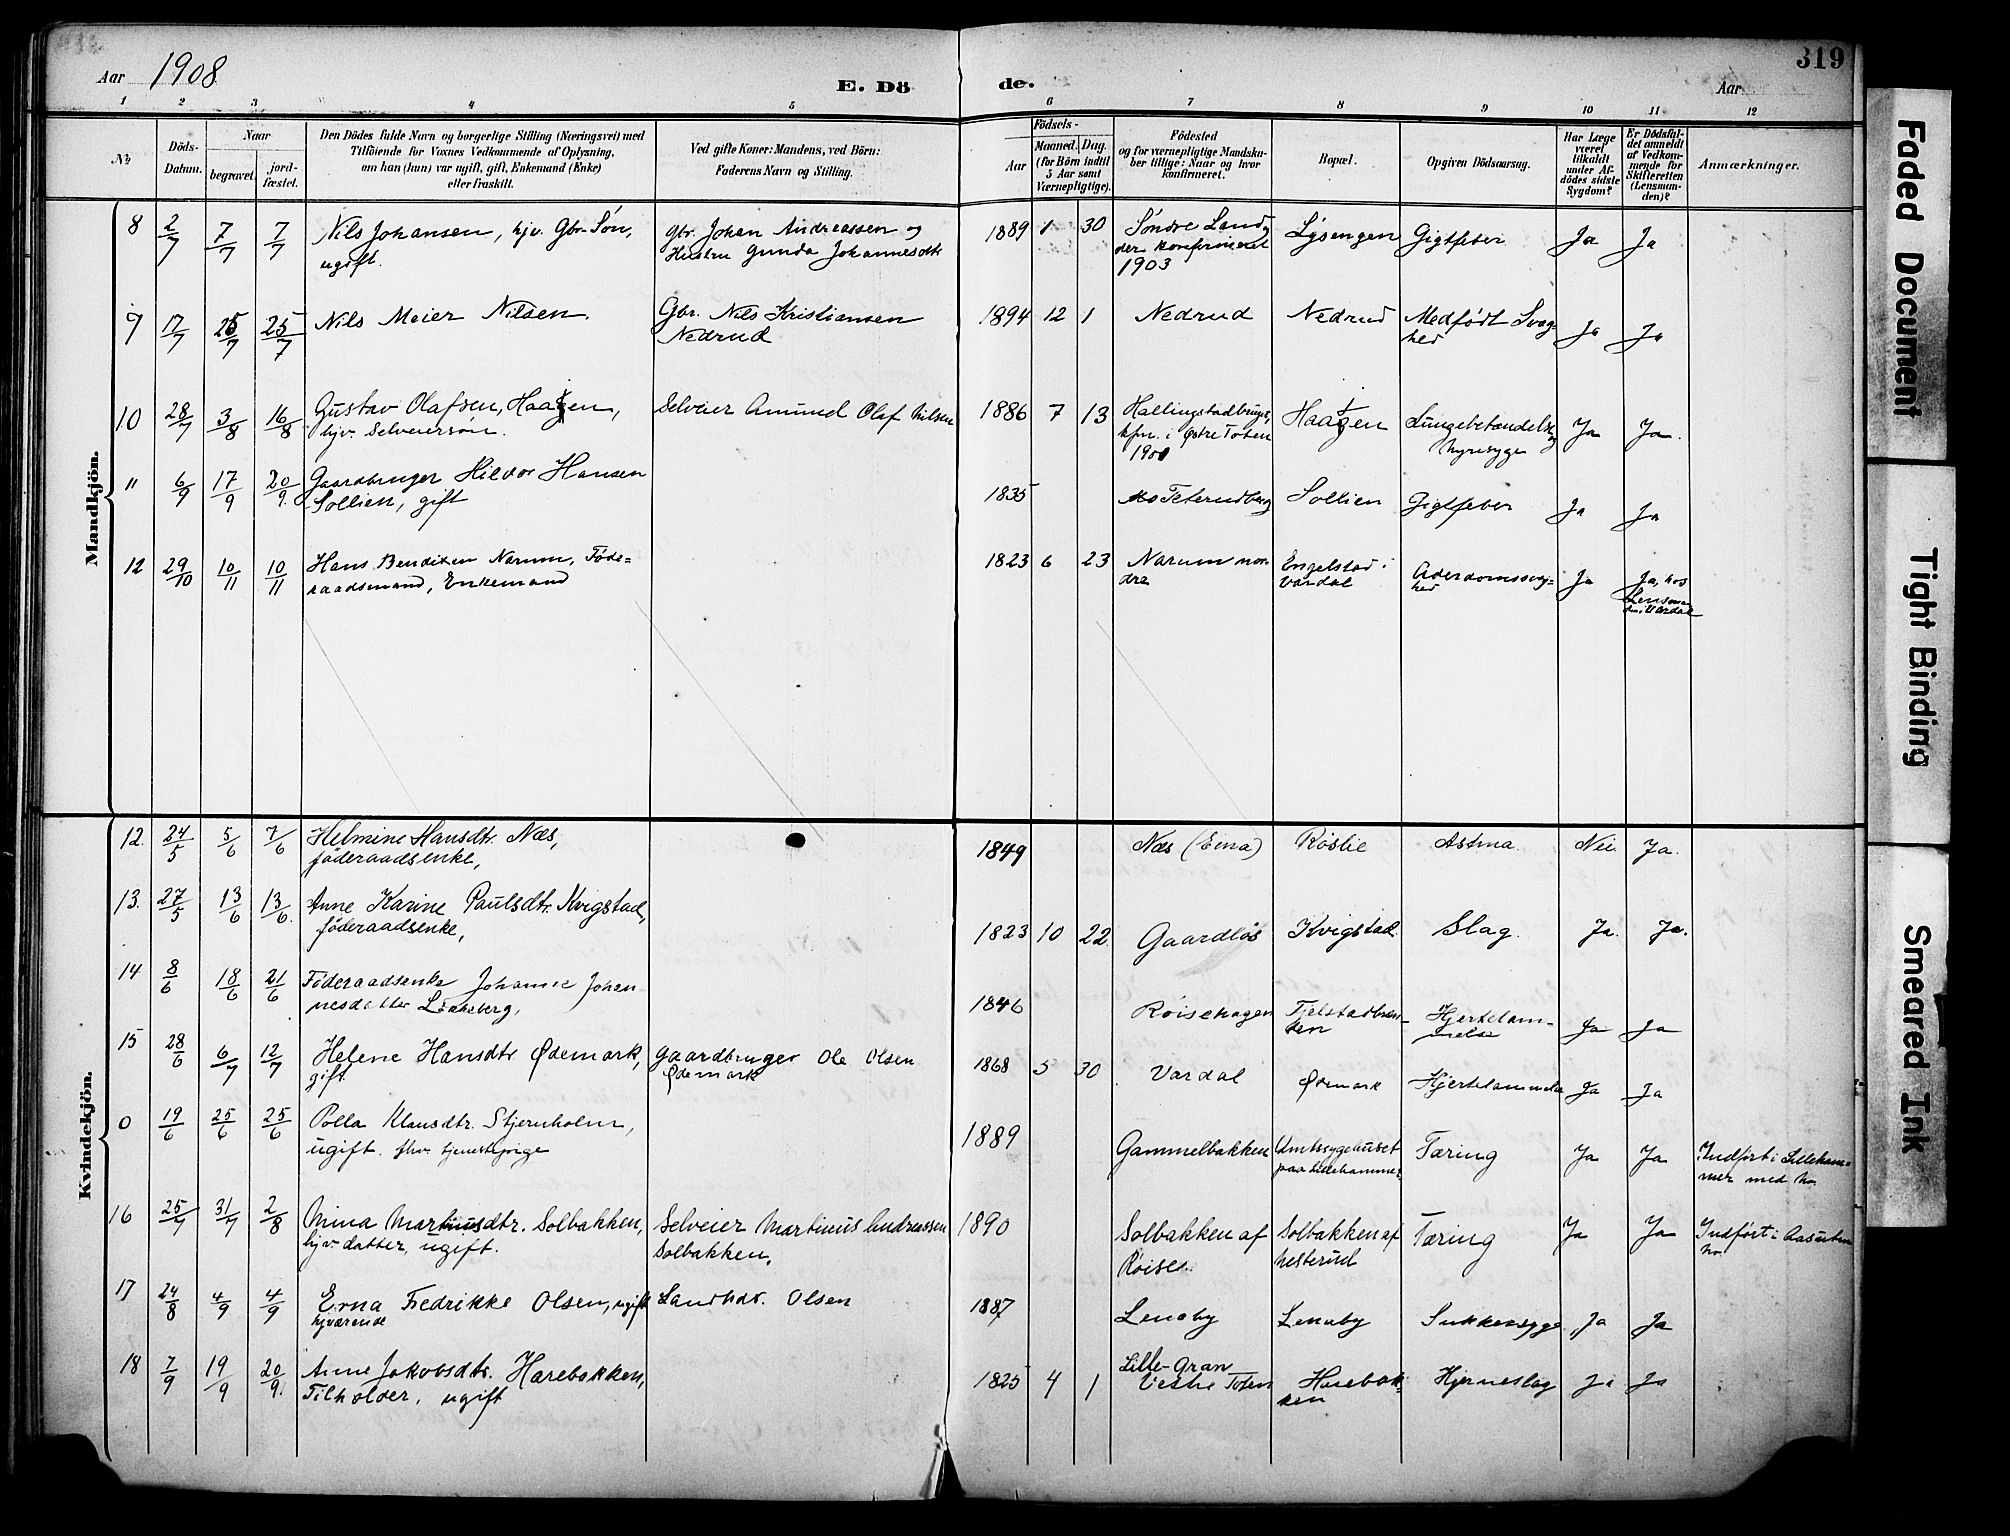 319
Aar 1908
E. Dö de.
Aar
1 2 3 4 5 6 7 8 9 10 11 12
No
Döds-Datum.
Naar
begravet.
jord-fæstet.
Den Dödes fulde Navn og borgerlige Stilling (Næringsvei) med
Tilföiende for Voxnes Vedkommende af Oplysning,
om han (hun) var ugift, gift, Enkemand (Enke)
eller fraskilt.
Ved gifte Koner: Mandens, ved Börn:
Faderens Navn og Stilling.
Födsels-
Aar
Maaned. Dag.
(for Börn indtil
5 Aar samt
Værnepligtige).
Födested
og for værnepligtige Mandska-
ber tillige: Naar og hvor
konfirmeret.
Bopæl.
Opgiven Dödsaarsag.
Har Læge
været
tilkaldt
under Af-
dödes sidste
Sygdom?
Er Dödsfal-
det anmeldt
af Vedkom-
mende for
Skifteretten
(Lensman-
den)?
Anmærkninger.
Mandkjön.
8 2/7 7/7 7/7 Nils Johansen, hjv. Gbr. Søn, gbr. Johan Andreassen og 1889 1 30 Søndre Land, Lysengen Gigtfeber Ja Ja
ugift. Hustru Gunda Johannesdtr der konfirmeret
1903
9 17/7 25/7 25/7 Nils Meier Nilsen. Gbr. Nils Kristiansen 1894 12 1 Nedrud Nedrud Medfödt Svag- Ja Ja
Nedrud hed
10 28/7 3/8 16/8 Gustav Olafsen, Haagen, Selveier Amund Olaf Nilsen 1886 7 13 Hallingstadbrugs, Haagen Lungebetændelse Ja Ja.
hjv. Selveiersøn. kfm. i Østre Toten og Nyresyge
1901
" 6/9 17/9 20/9. Gaardbruger Hilvor Hansen 1835 Sollien Gigtfeber Ja Ja
Sollien, gift
12 29/10 10/11 10/11 Hans Bendixen Narum, Føde- 1823 6 23 Narum nor- Engelstad i Alderdomssvag- Ja Ja, hos
raadsmand, Enkemand dre Vardal hed Lensman-
den i Vardal
Kvindekjön.
12. 24/5 5/6 7/6 Helmine Hansdtr. Næs, 1849 Næs (Eina) Røslie Astma. Nei Ja.
föderaadsenke,
13. 27/5 13/6 13/6. Anne Karine Paulsdtr. Kvigstad, 1823 10 22 Gaardløs Kvigstad. Slag. Ja. Ja.
föderaadsenke,
14 8/6 18/6 21/6 Föderaadsenke Johanne Johan- 1846 Røisehagen Hjertelam- Ja Ja
nesdatter ken melse
15 28/6 6/7 12/7 Helene Hansdtr Ødemark, Gaardbruger Ole Olsen 1868 5 30 Vardal Ødemark Hjertelammelse Ja Ja
gift. Ødemark
0 19/6 25/6 25/6 Polla Klausdtr. Stjernholm, 1889 Gammelbakken Amtssygehuset Tæring Ja Ja Indført i Lilleham-
ugift. fhv. tjenestepige paa Lillehammer mer med No
16 25/7 31/7 2/8 Mina Martinusdtr. Solbakken, Selveier Martinus Andreassen 1890 Solbakken af Solbakken af Tæring Ja Ja Indført i
hjv. datter, ugift. Solbakken, Røise Hesterud No.
17 24/8 4/9 4/9 Erna Fredrikke Olsen, ugift Landhdr. Olsen 1887 Lenaby Lenaby Sukkersyge Ja Ja
hjværende
18 7/9 19/9 20/9. Anne Jakobsdtr. Harebakken, 1825 4 1 Lille-Gran Harebak- Hjerneslag Ja Ja
Tilholder, ugift Vestre Toten ken
Faded Document
Tight Binding
Smeared Ink